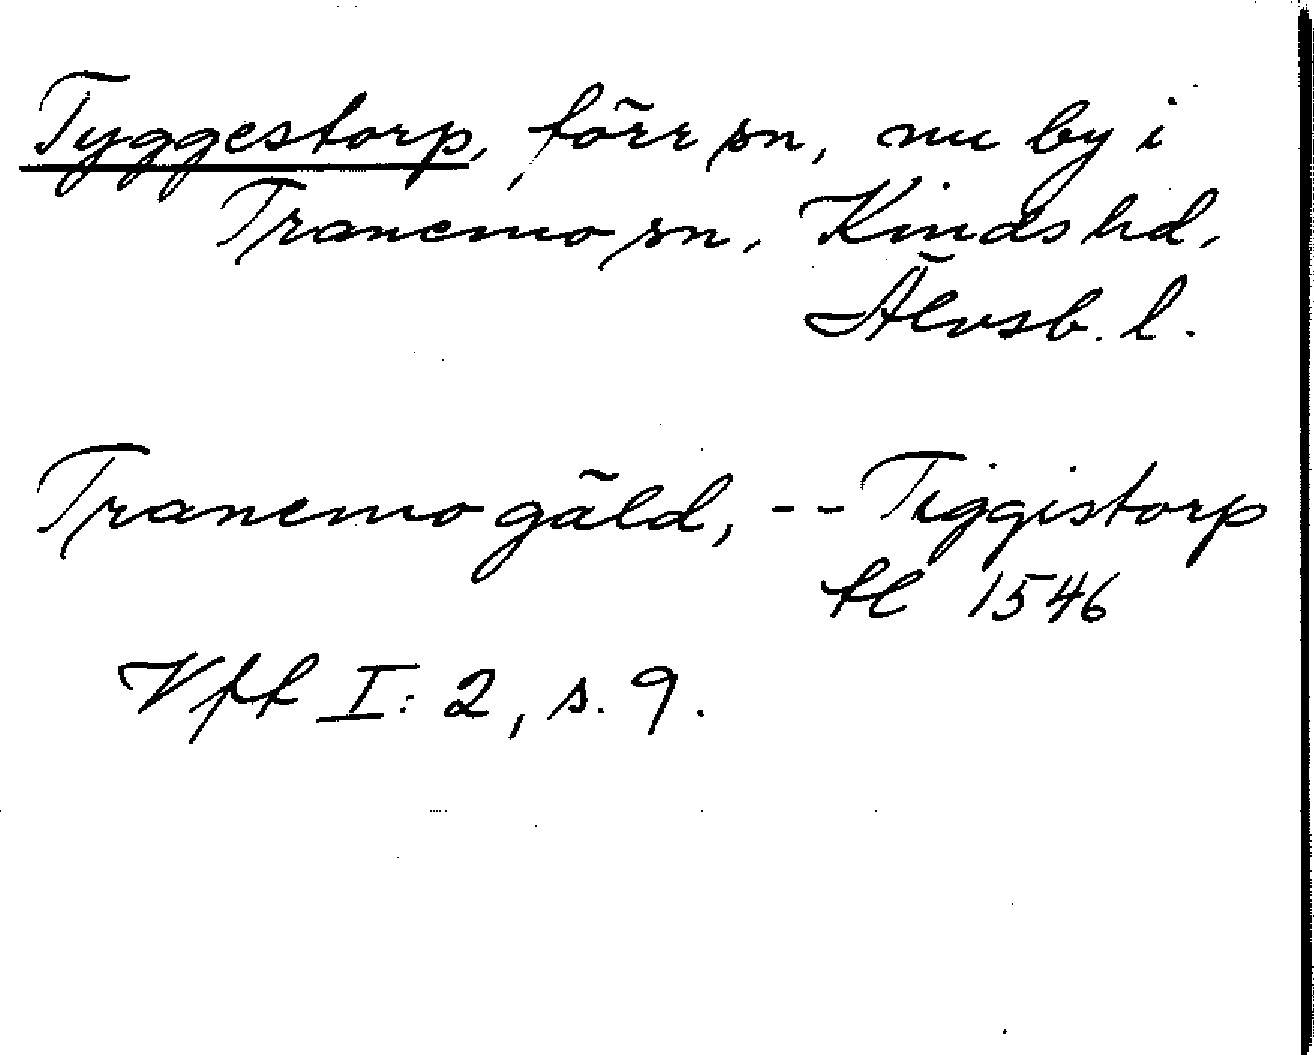 Tyggestorp, förr sn, nu by i
Tranemo sn, Kinds hd,
Älvsb. l.
Tranemo gäld, -- Tiggistorp
fl 1546
Vff I: 2, s. 9.